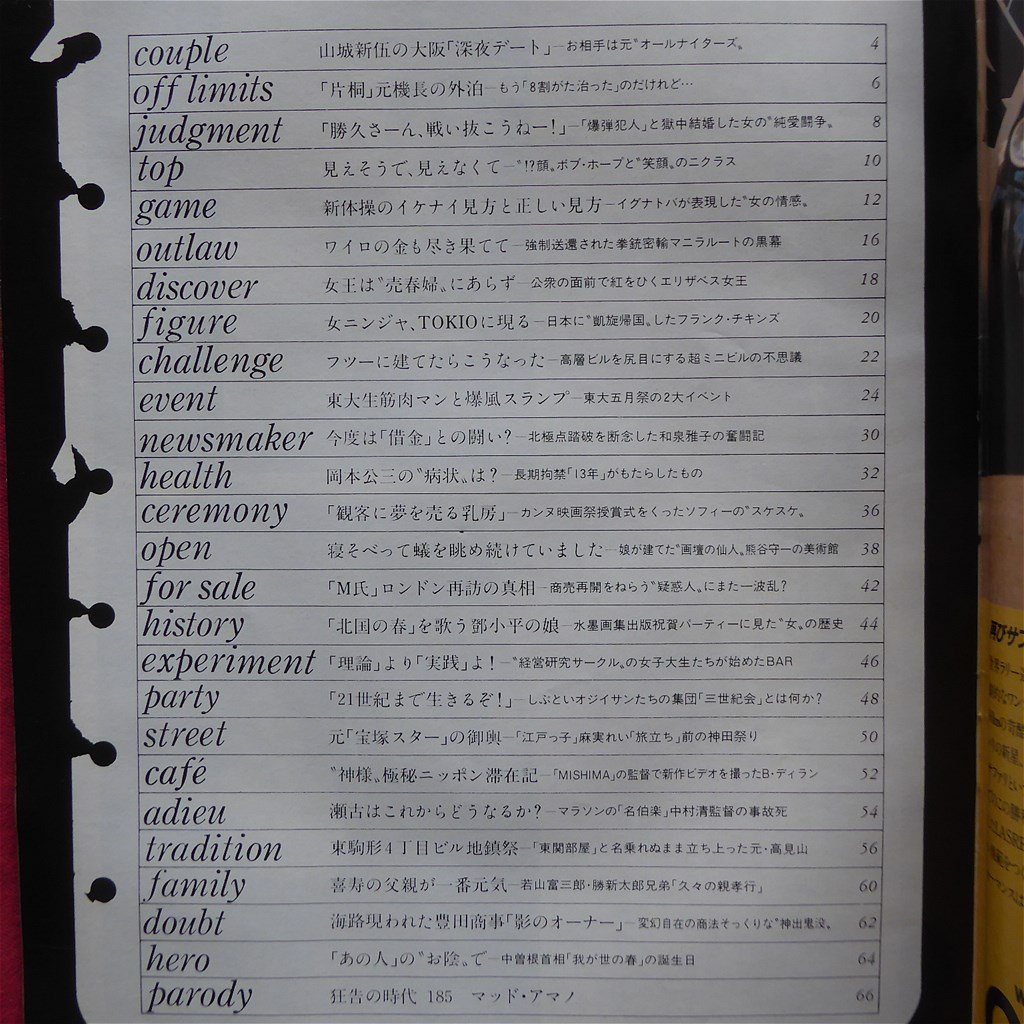 couple 山城新伍の大阪「深夜デート」—お相手は元〝オールナイターズ〟 4
off limits 「片桐」元機長の外泊—もう「8割がた治った」のだけれど… 6
judgment 「勝久さーん、戦い抜こうねー!」—「爆弾犯人」と獄中結婚した女の〝純愛闘争〟 8
top 見えそうで、見えなくて—〝!?顔〟ボブ・ホープと〝笑顔〟のニクラス 10
game 新体操のイケナイ見方と正しい見方—イグナトバが表現した〝女の情感〟 12
outlaw ワイロの金も尽き果てて—強制送還された拳銃密輸マニラルートの黒幕 16
discover 女王は〝売春婦〟にあらず—公衆の面前で紅をひくエリザベス女王 18
figure 女ニンジャ、TOKIOに現る—日本に〝凱旋帰国〟したフランク・チキンズ 20
challenge フツーに建てたらこうなった—高層ビルを尻目にする超ミニビルの不思議 22
event 東大生筋肉マンと爆風スランプ—東大五月祭の2大イベント 24
newsmaker 今度は「借金」との闘い?—北極点踏破を断念した和泉雅子の奮闘記 30
health 岡本公三の〝病状〟は?—長期拘禁「13年」がもたらしたもの 32
ceremony 「観客に夢を売る乳房」—カンヌ映画祭授賞式をくったソフィーの〝スケスケ〟 36
open 寝そべって蟻を眺め続けていました—娘が建てた〝画壇の仙人〟熊谷守一の美術館 38
for sale 「M氏」ロンドン再訪の真相—商売再開をねらう〝疑惑人〟にまた一波乱? 42
history 「北国の春」を歌う鄧小平の娘—水墨画集出版祝賀パーティーに見た〝女〟の歴史 44
experiment 「理論」より「実践」よ!—〝経営研究サークル〟の女子大生たちが始めたBAR 46
party 「21世紀まで生きるぞ!」—しぶといオジイサンたちの集団「三世紀会」とは何か? 48
street 元「宝塚スター」の御輿—「江戸っ子」麻実れい「旅立ち」前の神田祭り 50
café 〝神様〟極秘ニッポン滞在記—「MISHIMA」の監督で新作ビデオを撮ったB・ディラン 52
adieu 瀬古はこれからどうなるか?—マラソンの「名伯楽」中村清監督の事故死 54
tradition 東駒形4丁目ビル地鎮祭—「東関部屋」と名乗れぬまま立ち上った元・高見山 56
family 喜寿の父親が一番元気—若山富三郎・勝新太郎兄弟「久々の親孝行」 60
doubt 海路現われた豊田商事「影のオーナー」—変幻自在の商法そっくりな〝神出鬼没〟 62
hero 「あの人」の〝お陰〟で—中曽根首相「我が世の春」の誕生日 64
parody 狂告の時代 185 マッド・アマノ 66